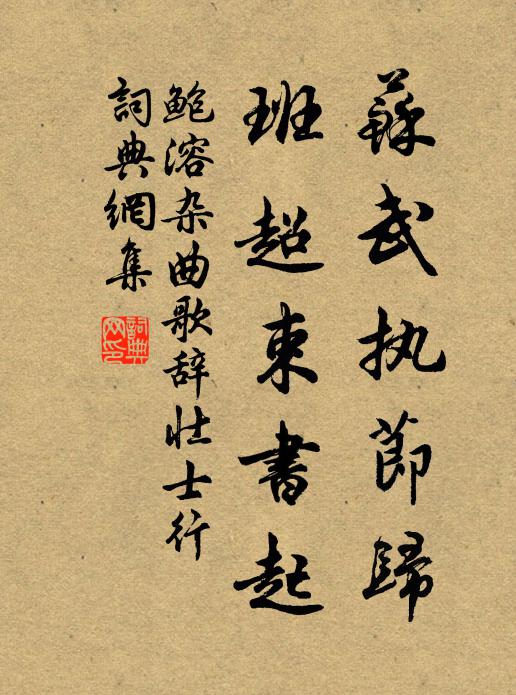 蘇武执莭歸
班超束書起
鲍溶杂曲歌辞壮士行
詞典網集
詞典
网印